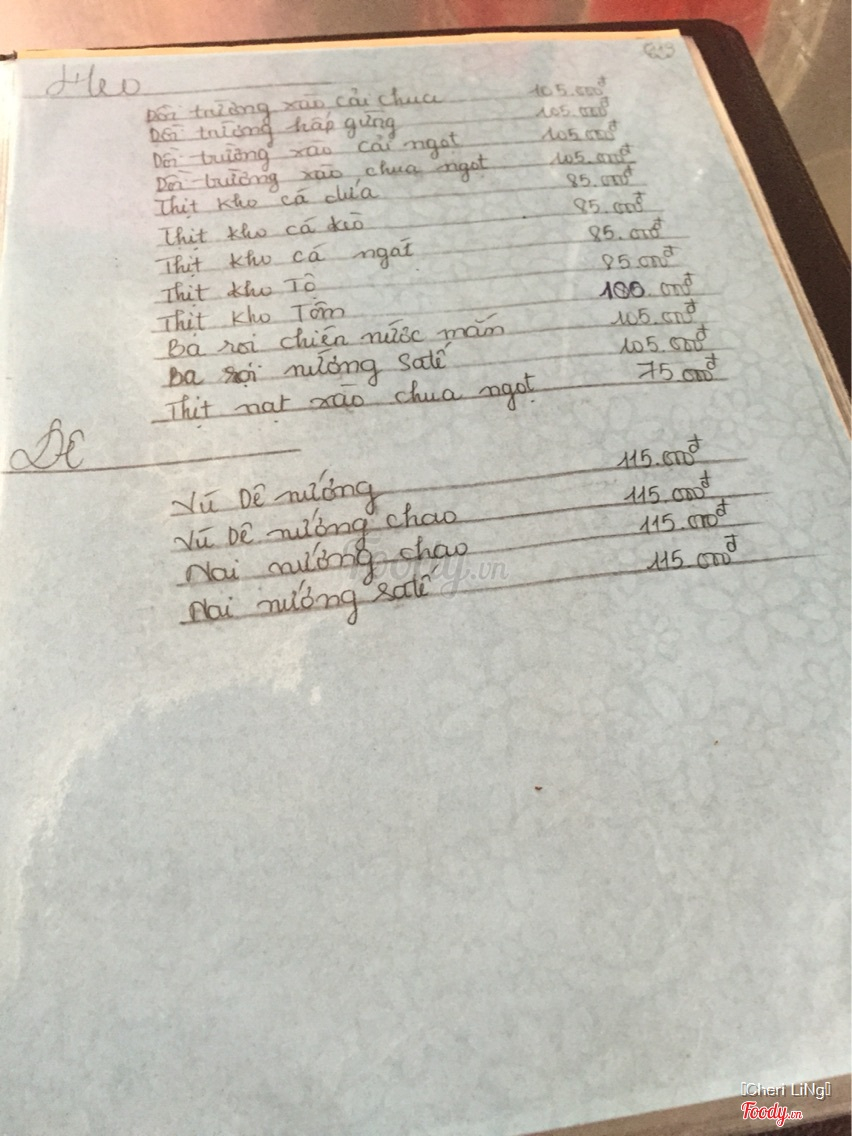 Heo
Dồi trường xào cải chua 105.000đ
Dồi trường hấp gừng 105.000đ
Dồi trường xào cải ngọt 105.000đ
Dồi trường xào chua ngọt 105.000đ
Thịt kho cá dứa 85.000đ
Thịt kho cá kèo 85.000đ
Thịt kho cá ngát 85.000đ
Thịt kho Tộ 85.000đ
Thịt kho Tôm 100.000đ
Ba rọi chiên nước mắm 105.000đ
Ba rọi nướng Satế 105.000đ
Thịt nạt xào chua ngọt 75.000đ
Dê
Vú Dê nướng 115.000đ
Vú Dê nướng chao 115.000đ
Nai nướng chao 115.000đ
Nai nướng satế 115.000đ
Foody.vn
[Cheri LiNg]
Foody.vn